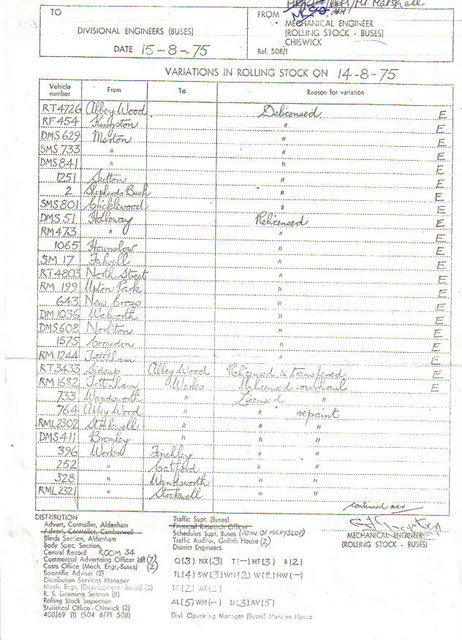 TO
DIVISIONAL ENGINEERS (BUSES)
DATE 15-8-75
Marshall
FROM
MECHANICAL ENGINEER
(ROLLING STOCK - BUSES)
CHISWICK
Ref. 508/1
VARIATIONS IN ROLLING STOCK ON 14-8-75
Vehicle number From To Reason for variation
RT4726 Abbey Wood Delicensed E
RF 454 Kingston " E
DMS 629 Merton " E
SMS 733 " " E
DMS 841 " " E
1251 Sutton " E
2 Shepherds Bush " E
SMS 801 Cricklewood " E
DMS 51 Holloway Relicensed E
RM 473 " " E
1065 Hounslow " E
SM 17 Fulwell " E
RT 4803 North Street " E
RM 199 Upton Park " E
643 New Cross " E
DM 1036 Walworth " E
DMS 608 Norbiton " E
1575 Croydon " E
RM 1244 Tottenham " E
RT 3433 Sidcup Abbey Wood Relicensed & transferred E
RM 1682 Tottenham Works Delicensed overhaul E
733 Wandsworth " Licensed "
764 Abbey Wood " " repaint
RML 2302 Stockwell " " "
DMS 411 Bromley " " "
396 Works Finchley " "
252 " Catford " "
328 " Wandsworth " "
RML 2321 " Stockwell " "
continued over
DISTRIBUTION
Advert. Controller, Aldenham
Advert. Controller, Camberwell
Blinds Section, Aldenham
Body Spec. Section,
Central Record ROOM 34
Commercial Advertising Officer (7)
Costs Office (Mech. Engr.-Buses) (2)
Scientific Adviser (2)
Distribution Services Manager
Mech. Engr. (Development-Buses) (2)
R. S. Licensing Section (8)
Rolling Stock Inspection
Statistical Office - Chiswick (2)
408/69 (1) 504 6/71 508)
Traffic Supt. (Buses)
Financial Research Officer
Schedules Supt. (Buses) (ATTN OF MARYSLOP)
Traffic Auditor, Griffith House (2)
District Engineers
Q(3) NX(3) T(-) HT(3) R(2)
TL(4) SW(3) WN(2) W(2) HW(-)
TC(2) AR(2)
AL(5) WH(-) U(3) AV(5)
Divl. Operating Manager (Buses) Mandon House
MECHANICAL ENGINEER
(ROLLING STOCK - BUSES)